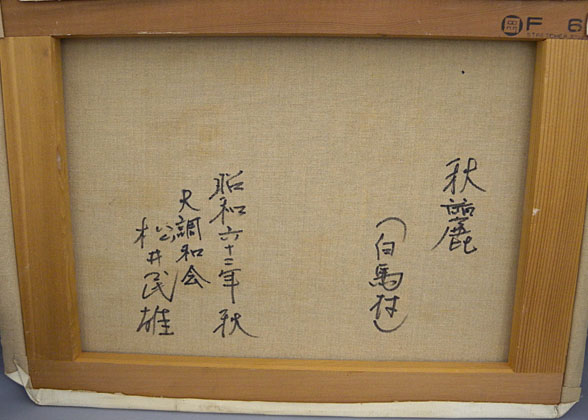 F 6
秋麗
（白馬村）
昭和六十二年 秋
大調和会
松井民雄